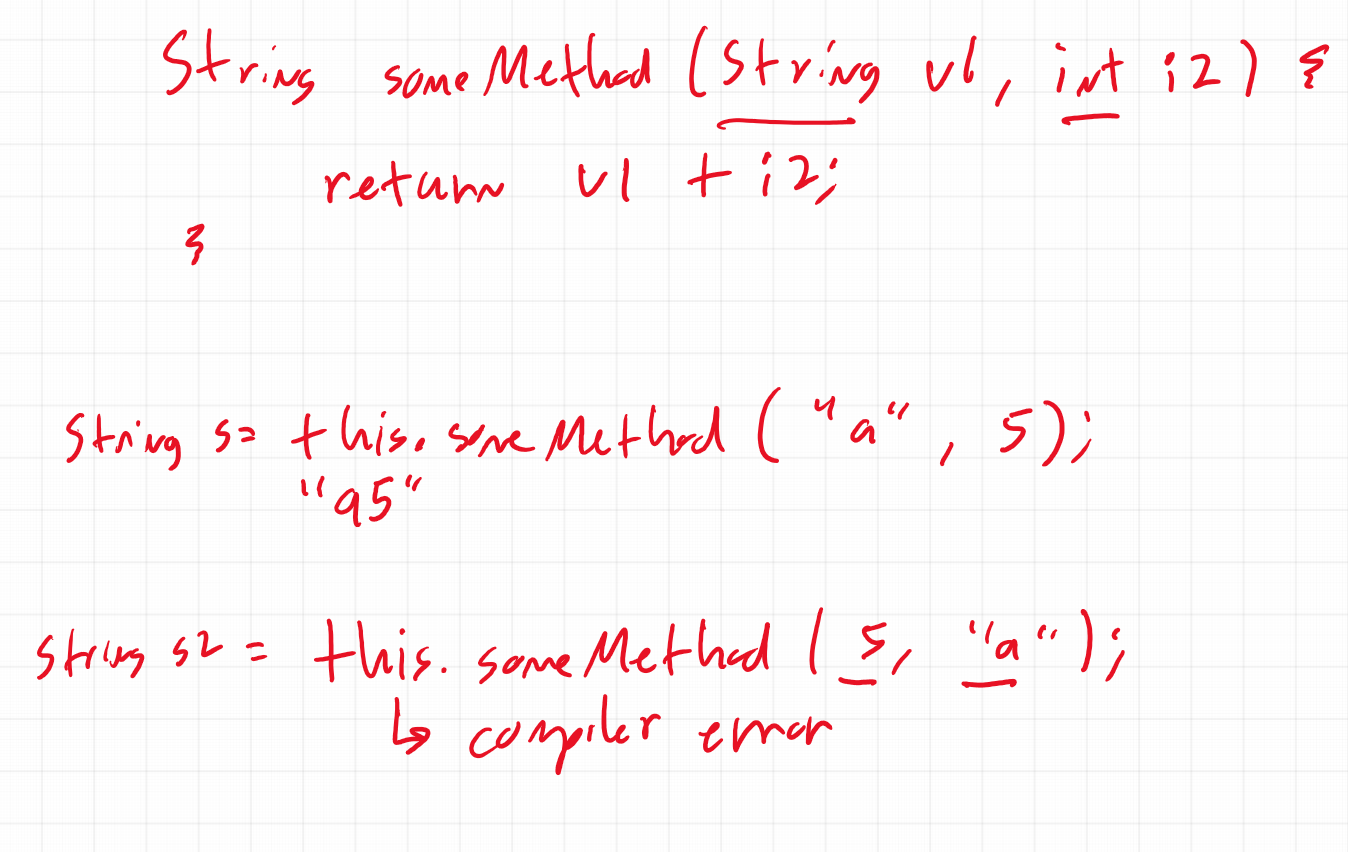 String someMethod (String v1, int i2) {
return v1 + i2;
}
String s= this.someMethod ( "a", 5);
"a5"
String s2 = this.someMethod ( 5, "a");
↳ compiler error